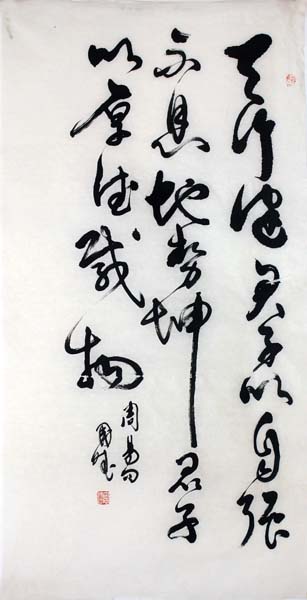 天行健君子以自强
不息地势坤君子
以厚德载物
周易句